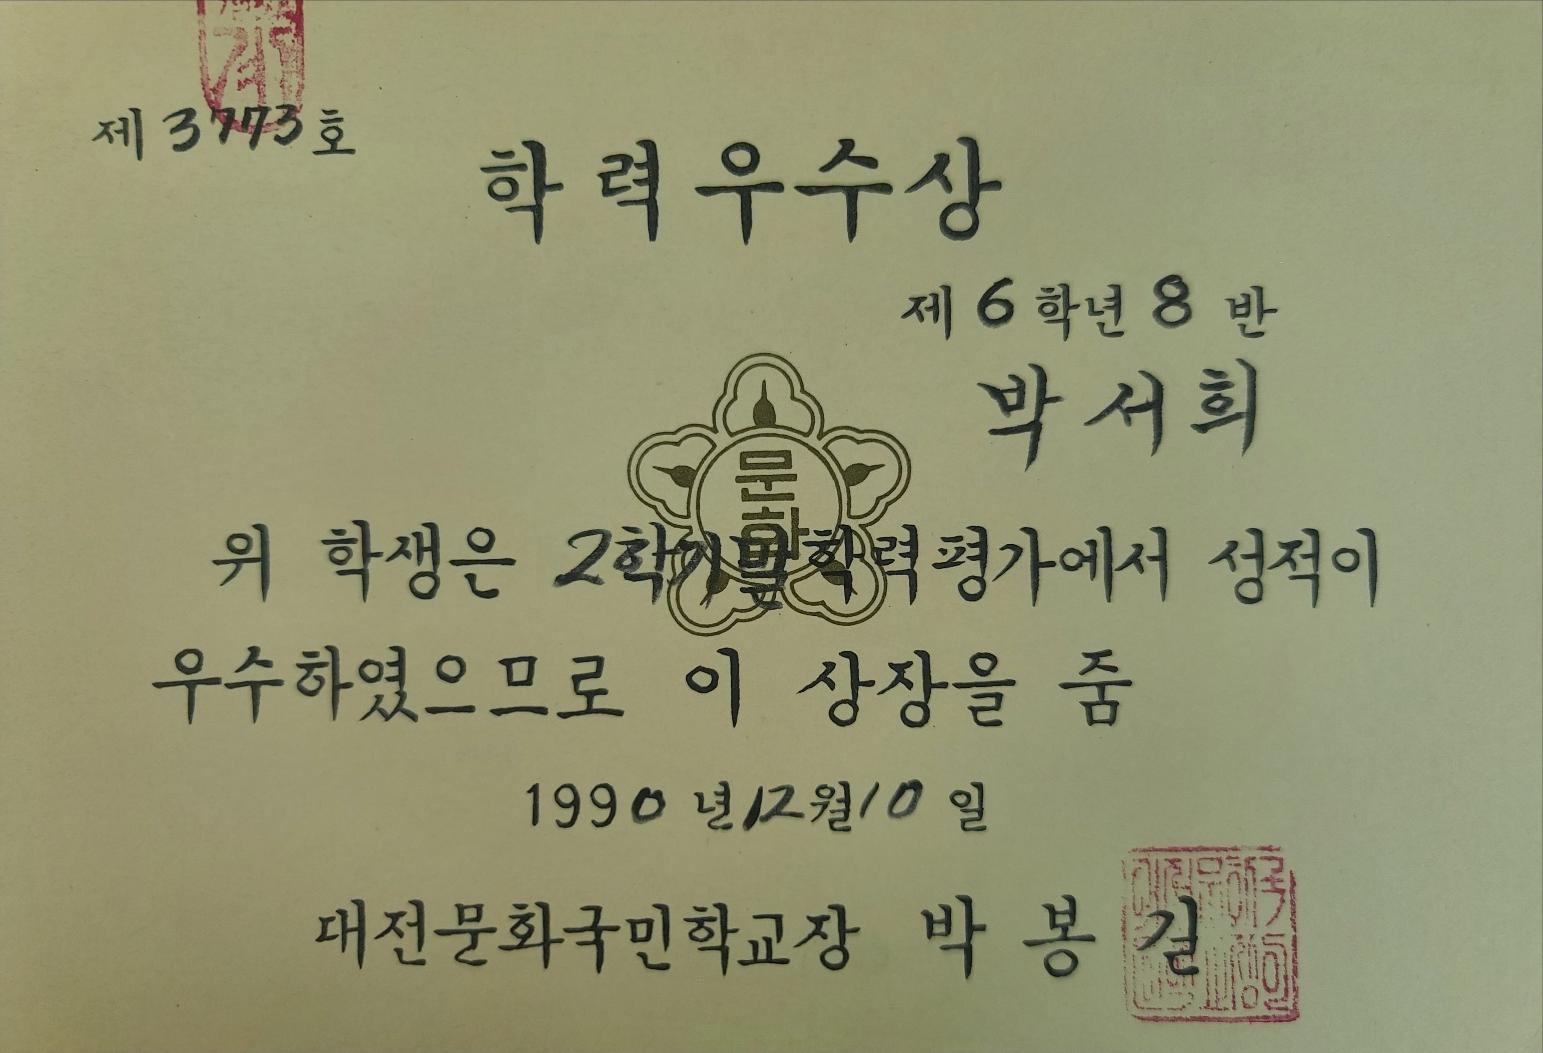 계
제 3773 호
학력우수상
제 6 학년 8 반
박서희
문화
위 학생은 2학기말 학력평가에서 성적이
우수하였으므로 이 상장을 줌
1990년 12월 10일
대전문화국민학교장 박봉길